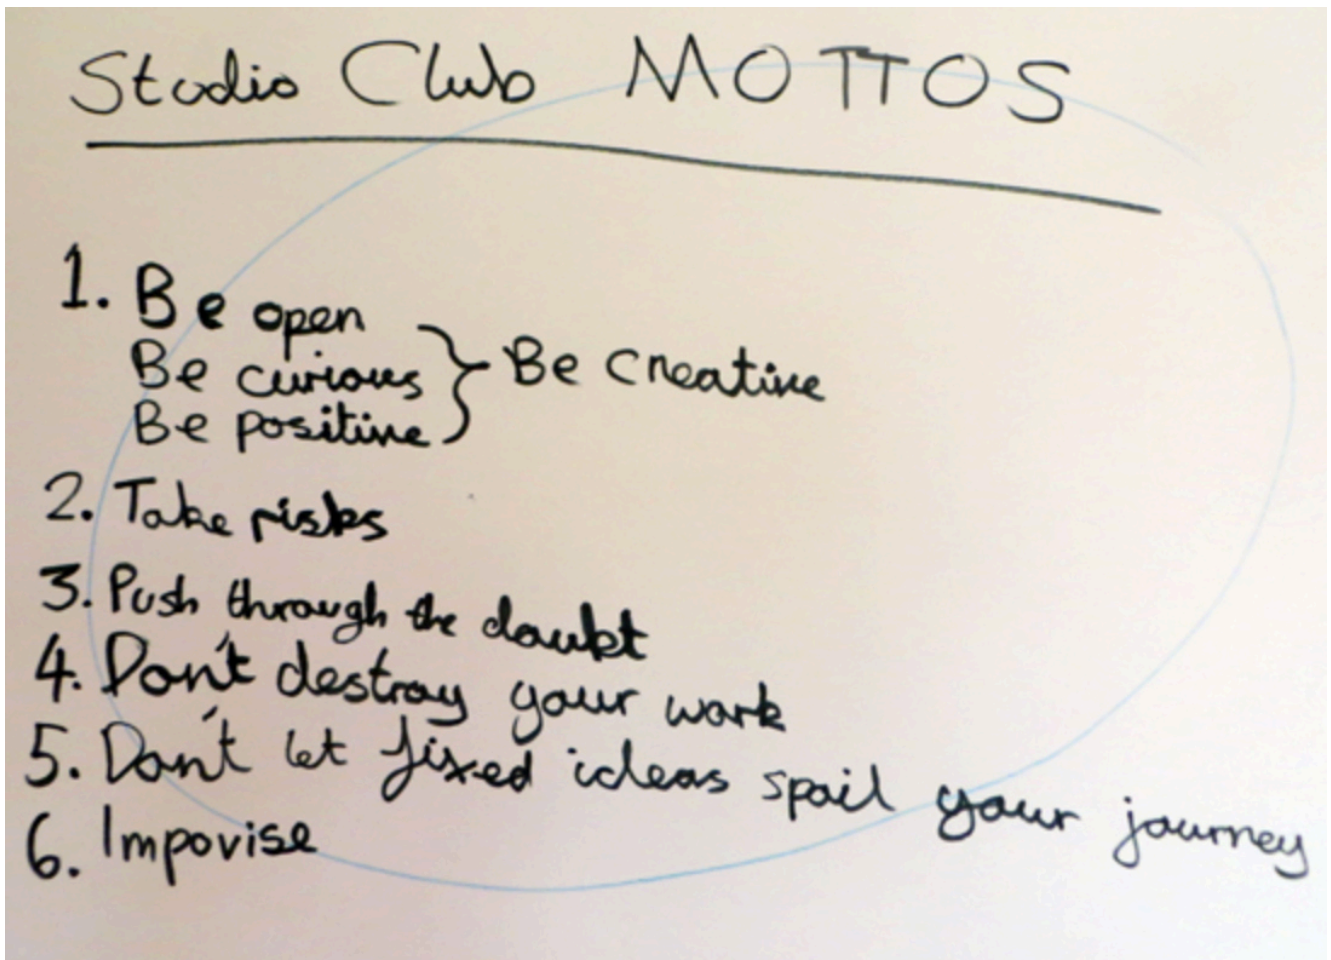 Studio Club MOTTOS
1. Be open
Be curious } Be creative
Be positive
2. Take risks
3. Push through the doubt
4. Don't destroy your work
5. Don't let fixed ideas spoil your journey
6. Impovise